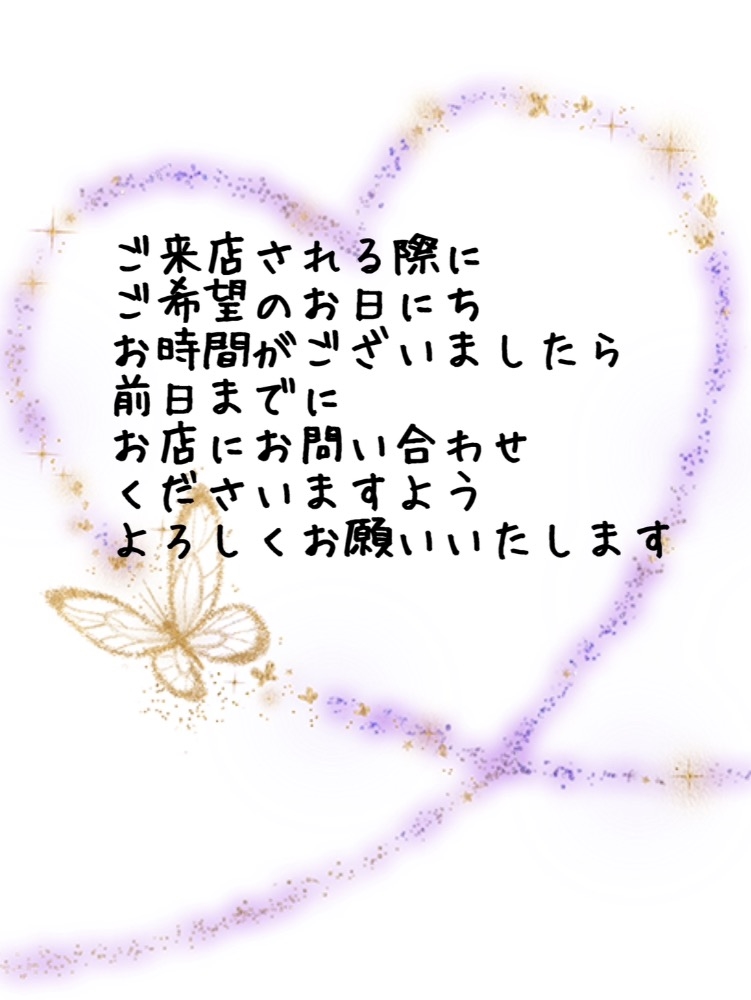 ご来店される際に
ご希望のお日にち
お時間がございましたら
前日までに
お店にお問い合わせ
くださいますよう
よろしくお願いいたします